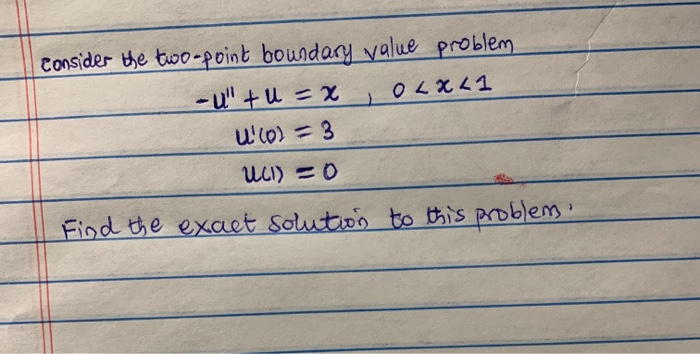 consider the two-point boundary value problem
-u'' + u = x , 0 < x < 1
u'(0) = 3
u(1) = 0
Find the exact solution to this problem.